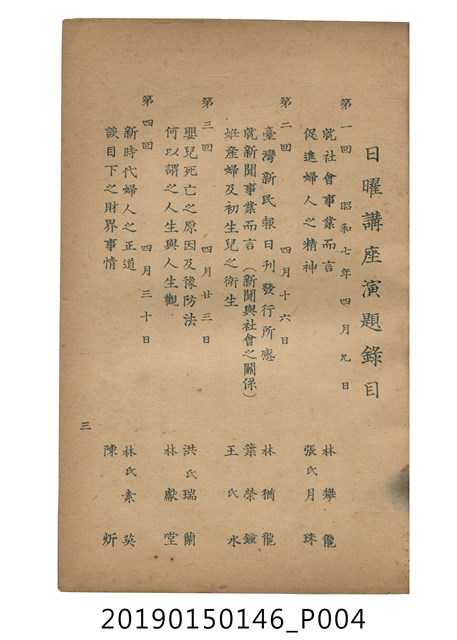 日曜講座演題錄目
第一回 昭和七年四月九日
就社會事業而言 林攀龍
促進婦人之精神 張氏月珠
第二回 四月十六日
臺灣新民報日刊發行所感 林猶龍
就新聞事業而言(新聞與社會之關係) 葉榮鐘
姙產婦及初生兒之衛生 王氏水
第三回 四月廿三日
嬰兒死亡之原因及豫防法 洪氏瑞蘭
何以謂之人生與人生觀 林獻堂
第四回 四月三十日
新時代婦人之正道 林氏素英
談目下之財界事情 陳炘
三
20190150146_P004